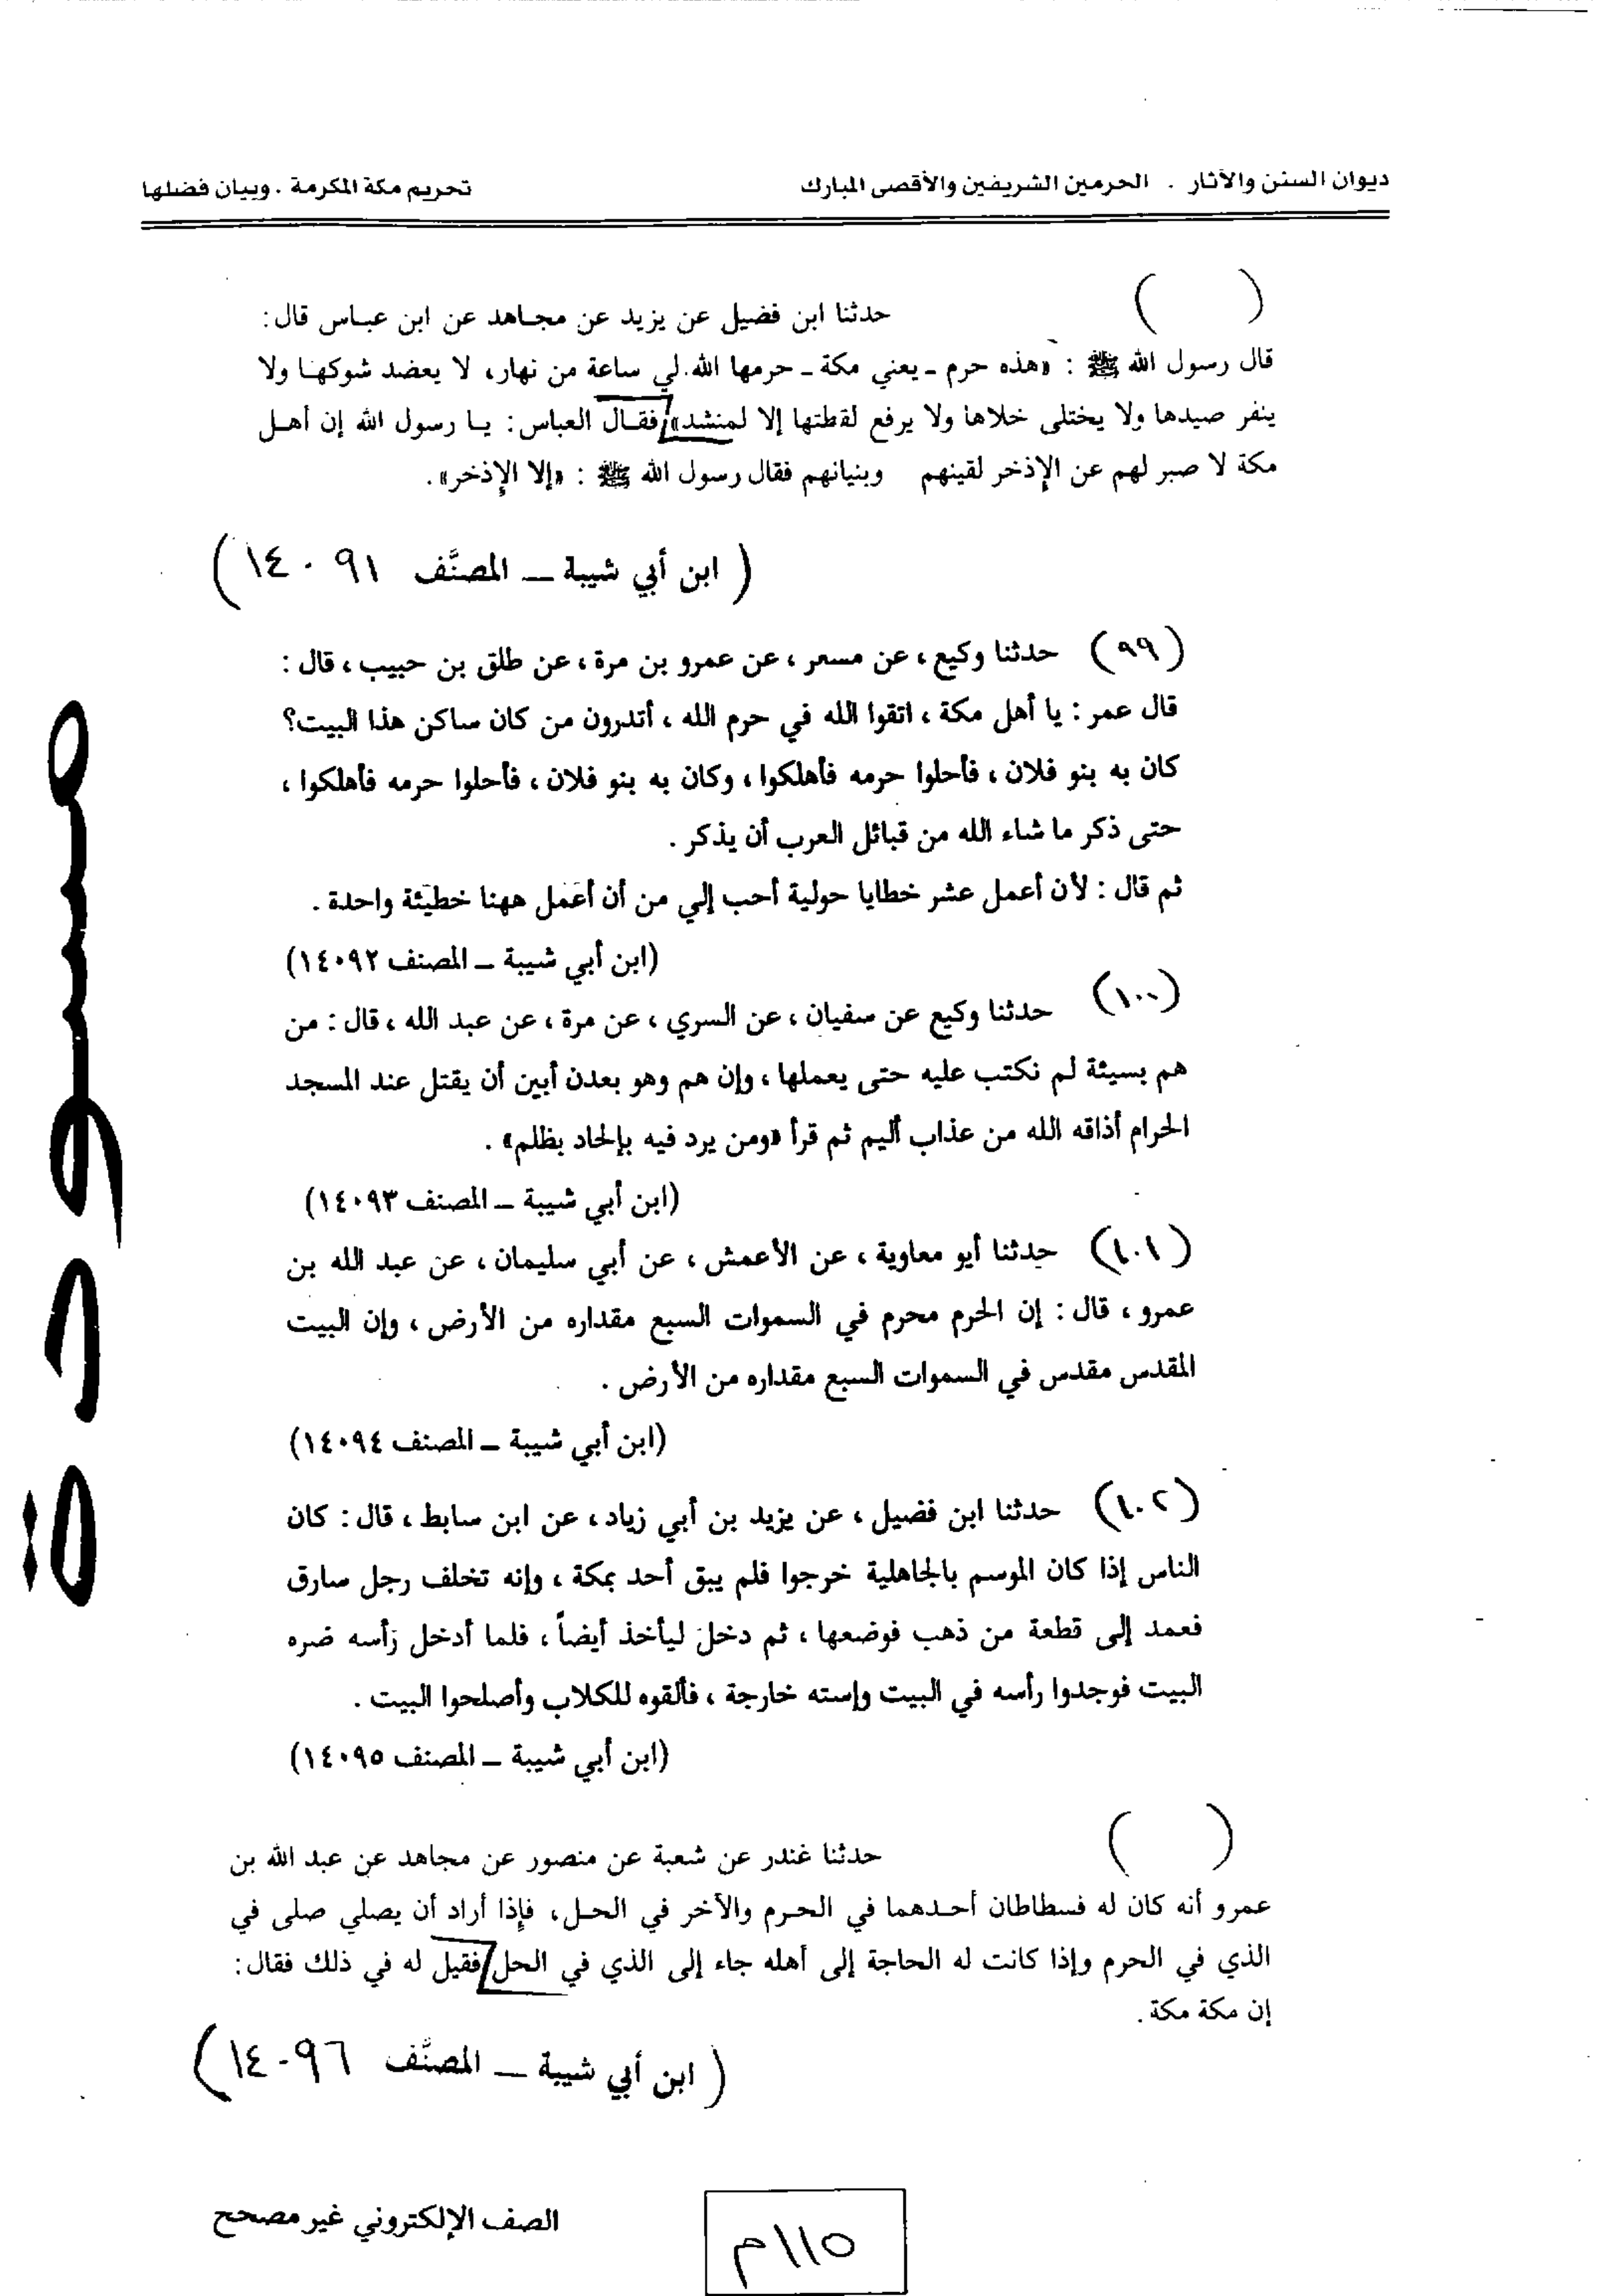 ديوان السنن والآثار . الحرمين الشريفين والأقصى المبارك
تحريم مكة المكرمة . وبيان فضلها
( ) حدثنا ابن فضيل عن يزيد عن مجاهد عن ابن عباس قال:
قال رسول الله ﷺ : «هذه حرم ـ يعني مكة ـ حرمها الله. لي ساعة من نهار، لا يعضد شوكها ولا
ينفر صيدها ولا يختلى خلاها ولا يرفع لقطتها إلا لمنشد» فقال العباس: يا رسول الله إن أهل
مكة لا صبر لهم عن الإذخر لقينهم وبنيانهم فقال رسول الله ﷺ : «إلا الإذخر».
( ابن أبي شيبة ــ المصنَّف ١٤٠٩١ )
(٩٩) حدثنا وكيع ، عن مسعر ، عن عمرو بن مرة ، عن طلق بن حبيب ، قال :
قال عمر : يا أهل مكة ، اتقوا الله في حرم الله ، أتدرون من كان ساكن هذا البيت؟
كان به بنو فلان ، فأحلوا حرمه فأهلكوا ، وكان به بنو فلان ، فأحلوا حرمه فأهلكوا ،
حتى ذكر ما شاء الله من قبائل العرب أن يذكر .
ثم قال : لأن أعمل عشر خطايا حولية أحب إلي من أن أعمل ههنا خطيئة واحدة .
(ابن أبي شيبة ــ المصنف ١٤٠٩٢)
(١٠٠) حدثنا وكيع عن سفيان ، عن السري ، عن مرة ، عن عبد الله ، قال : من
هم بسيئة لم نكتب عليه حتى يعملها ، وإن هم وهو بعدن أبين أن يقتل عند المسجد
الحرام أذاقه الله من عذاب أليم ثم قرأ «ومن يرد فيه بإلحاد بظلم» .
(ابن أبي شيبة ــ المصنف ١٤٠٩٣)
(١٠١) حدثنا أبو معاوية ، عن الأعمش ، عن أبي سليمان ، عن عبد الله بن
عمرو ، قال : إن الحرم محرم في السموات السبع مقداره من الأرض ، وإن البيت
المقدس مقدس في السموات السبع مقداره من الأرض .
(ابن أبي شيبة ــ المصنف ١٤٠٩٤)
(١٠٢) حدثنا ابن فضيل ، عن يزيد بن أبي زياد ، عن ابن سابط ، قال : كان
الناس إذا كان الموسم بالجاهلية خرجوا فلم يبق أحد بمكة ، وإنه تخلف رجل سارق
فعمد إلى قطعة من ذهب فوضعها ، ثم دخل ليأخذ أيضاً ، فلما أدخل رأسه ضره
البيت فوجدوا رأسه في البيت وإسته خارجة ، فألقوه للكلاب وأصلحوا البيت .
(ابن أبي شيبة ــ المصنف ١٤٠٩٥)
( ) حدثنا غندر عن شعبة عن منصور عن مجاهد عن عبد الله بن
عمرو أنه كان له فسطاطان أحدهما في الحرم والآخر في الحل، فإذا أراد أن يصلي صلى في
الذي في الحرم وإذا كانت له الحاجة إلى أهله جاء إلى الذي في الحل فقيل له في ذلك فقال:
إن مكة مكة.
( ابن أبي شيبة ــ المصنَّف ١٤٠٩٦ )
مسودة
الصف الإلكتروني غير مصحح
١١٥م